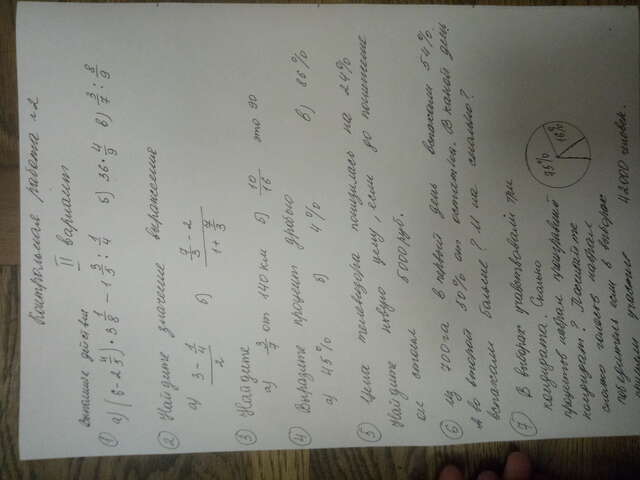 Контрольная работа №2
II вариант
Выполните действия
① а) (6-2 4/5) · 3 1/8 - 1 3/5 : 1/4 б) 36 · 4/9 в) 3/7 : 8/9
② Найдите значение выражения
а) (3 - 1/4)/2 б) (7/3 - 2)/(1 + 7/3)
③ Найдите
а) 3/7 от 140 км б) 10/16 это 90
④ Выразите процент дробью
а) 45% б) 4% в) 86%
⑤ Цена телевизора понизилась на 24%
Найдите новую цену, если до понижения
он стоил 5000 руб.
⑥ Из 700 га в первый день вспахали 54%
А во второй 50% от остатка. В какой день
вспахали больше? И на сколько?
⑦ В выборах участвовали три
кандидата. Сколько
процентов набрал проигравший
кандидат? Посчитайте
сколько голосов набрал
победитель если в выборах
приняли участие 42000 человек.